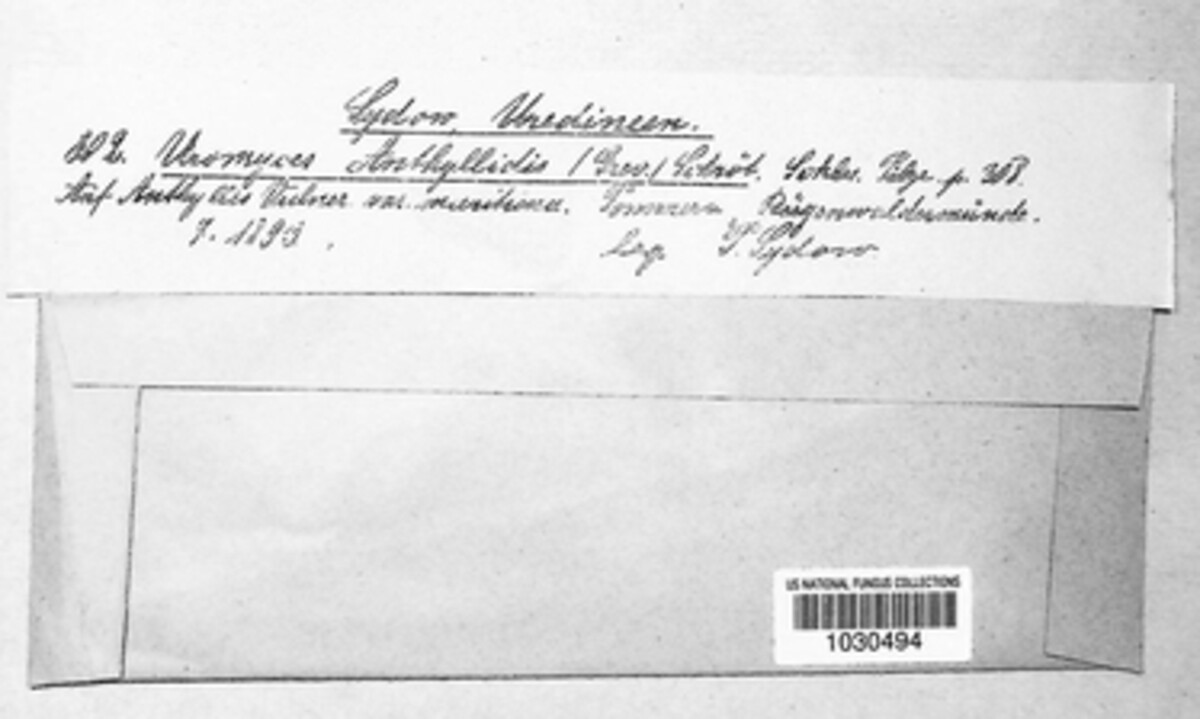 Sydow, Uredineen.
802. Uromyces Anthyllidis (Grev.) Schröt. Schles. Pilze p. 308.
Auf Anthyllis Vulner. var. maritima. Pommern Rügenwaldermünde.
7. 1893. leg. P. Sydow
US NATIONAL FUNGUS COLLECTIONS
1030494